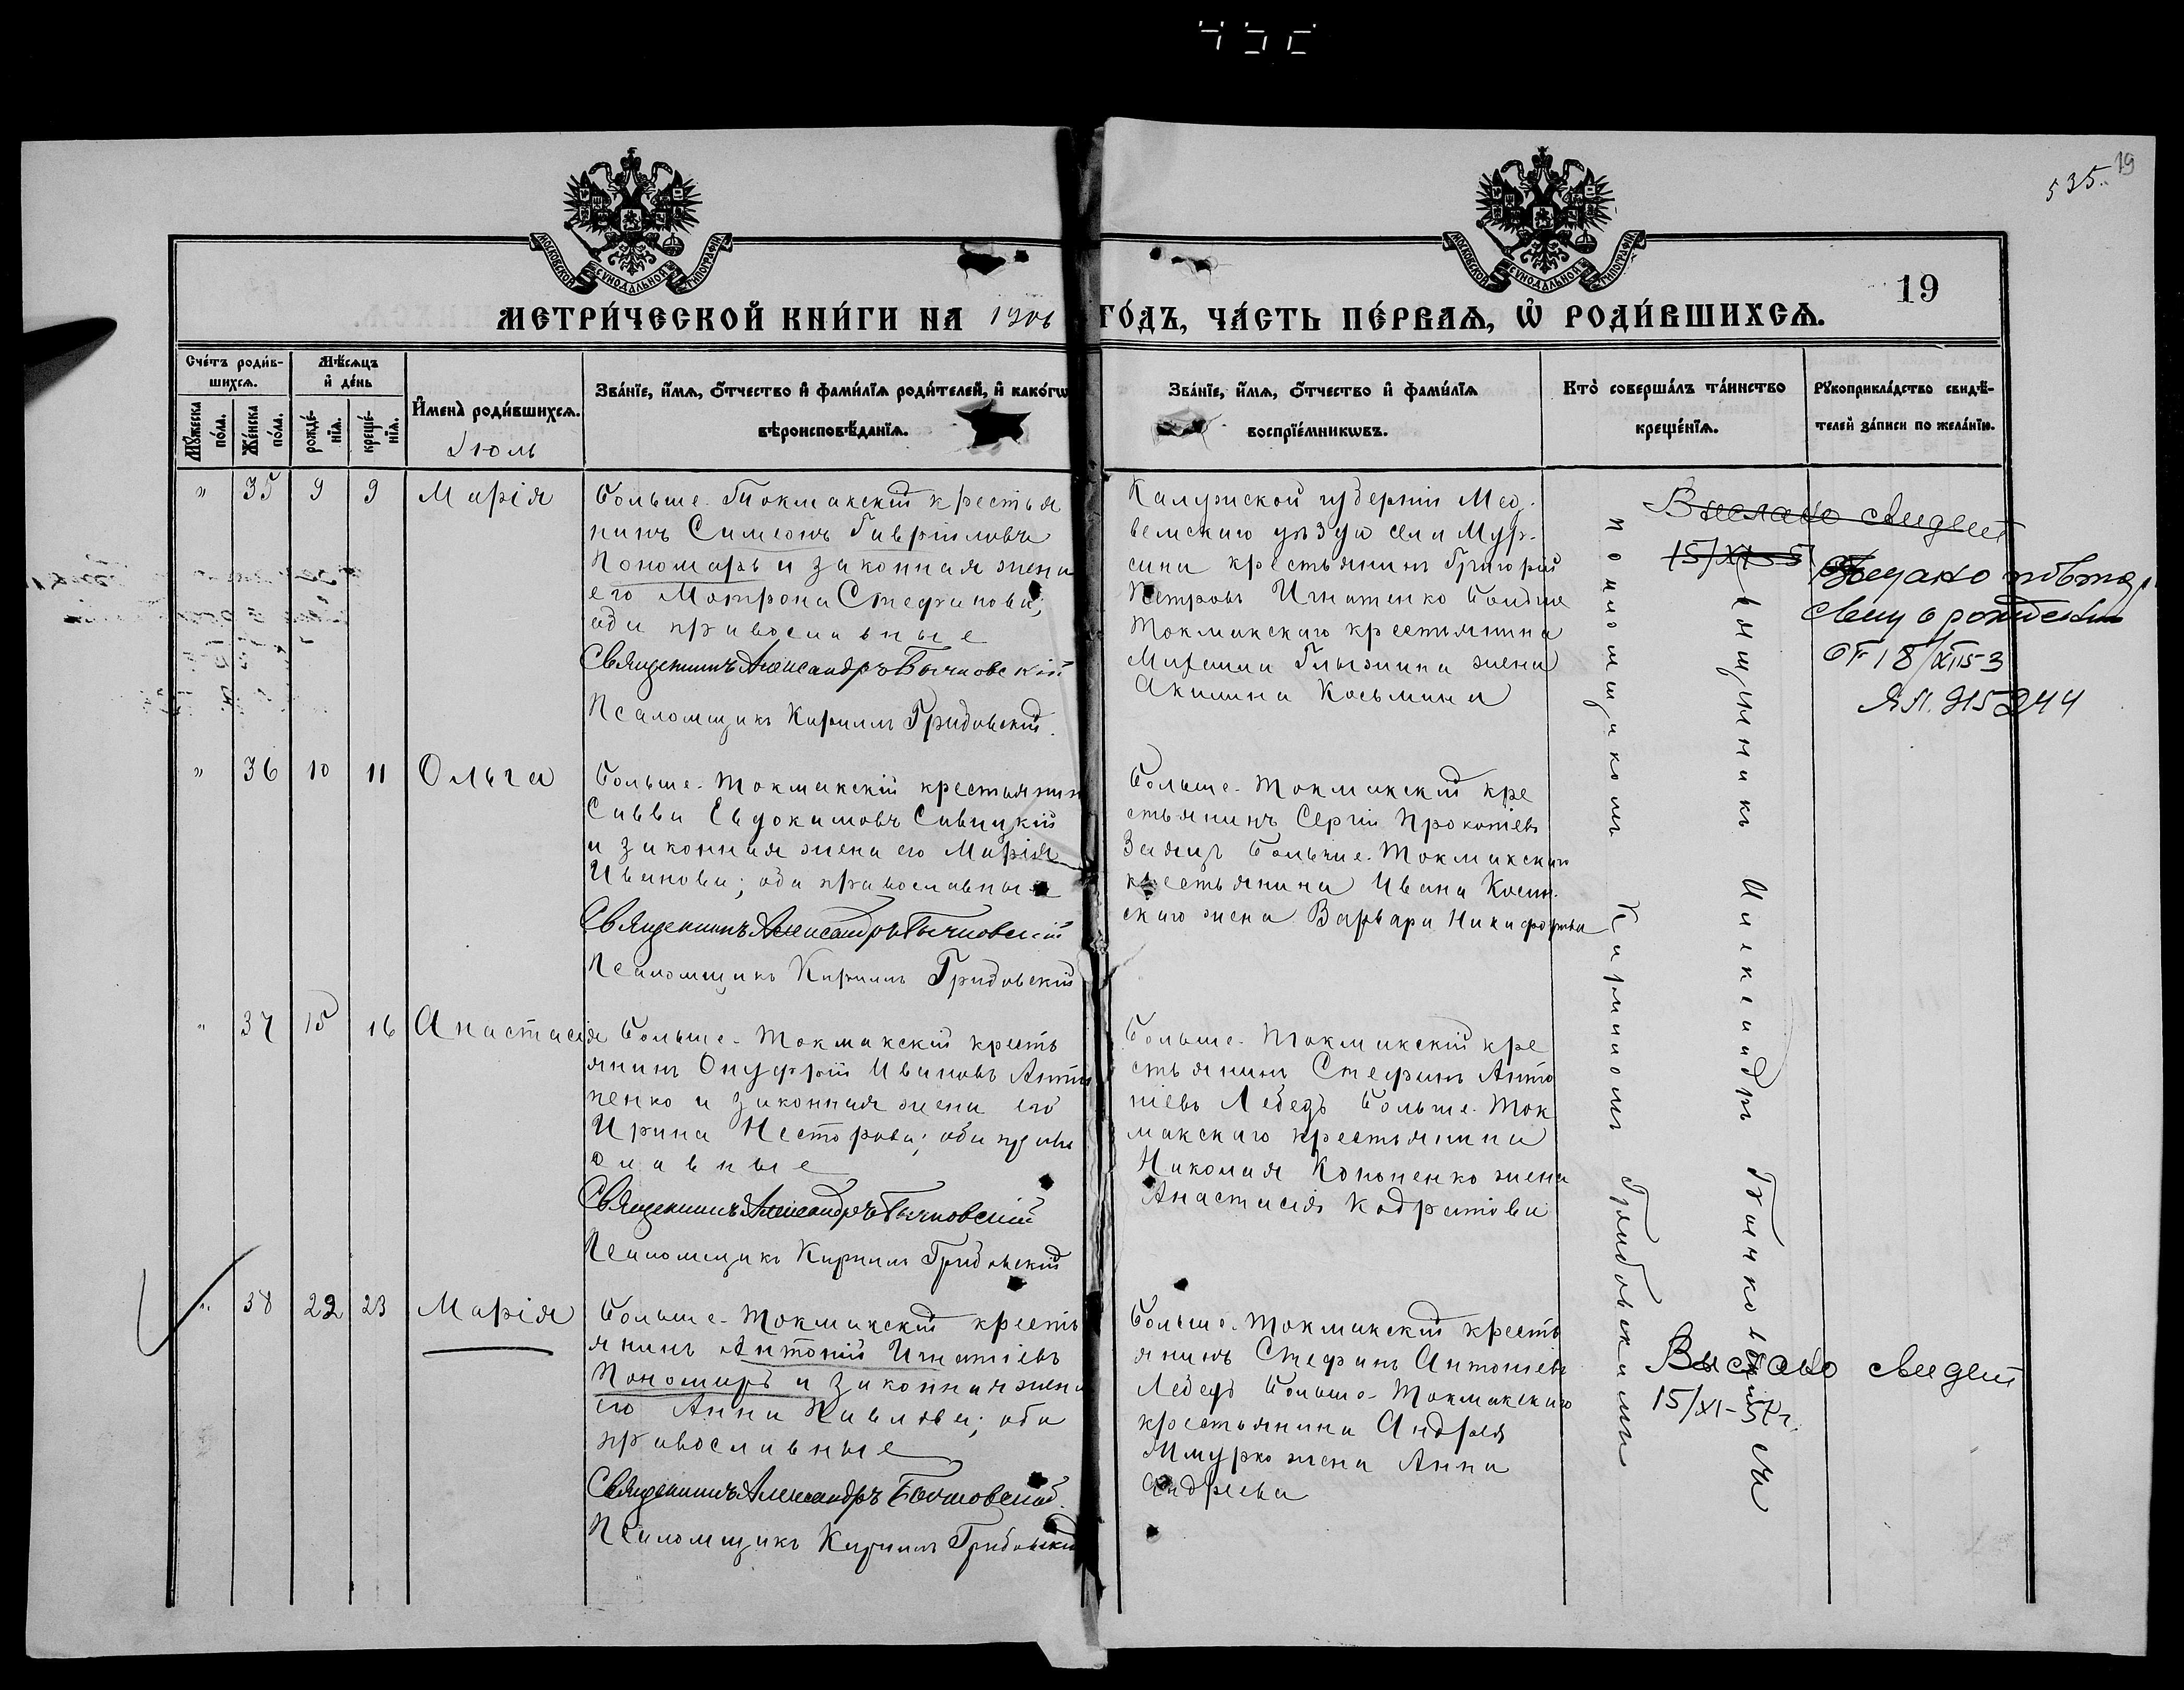 535.. 19
19
МОСКОВСКОЙ СУНОДАЛЬНОЙ ТИПОГРАФІИ
МОСКОВСКОЙ СУНОДАЛЬНОЙ ТИПОГРАФІИ
МЕТРИ́ЧЕСКОЙ КНИ́ГИ НА 1906 ГО́ДЪ, ЧА́СТЬ ПЕ́РВАѦ, Ѡ҆ РОДИ́ВШИХСѦ.
Сче́тъ роди́в-
шихсѧ.
Мꙋ́жеска по́ла.
Же́нска по́ла.
Мѣ́сѧцъ
и҆ де́нь
рожде́-
нїѧ.
креще́-
нїѧ.
И҆мена̀ роди́вшихсѧ.
Июль
Зва́нїе, и҆́мѧ, ѻ҆́тчество и҆ фами́лїѧ роди́телей, и҆ како́гѡ
вѣроисповѣ́данїѧ.
Зва́нїе, и҆́мѧ, ѻ҆́тчество и҆ фами́лїѧ
воспрїе́мникѡвъ.
Кто̀ соверша́лъ та́инство
креще́нїѧ.
Рꙋкоприкла́дство свидѣ́-
телей за́писи по жела́нїю.
" 35 9 9 Марія
Больше-Токмакскій крестья
нинъ Симеонъ Гавріиловъ
Пономарь и законная жена
его Матрона Стефанова;
оба православные
Священникъ Александръ Бычковскій
Псаломщикъ Кириллъ Гридовскій.
Калужской губерніи Мед-
села Мур-
сина крестьянинъ Григорій
Петровъ Игнатенко Больше
Токмакскаго крестьянина
жена
Акилина Косьмина
Выслано свидет
15/XI-5
Выдано повтор
свид о рождении
от 18/XII 5-3
ЯЛ. 915244
" 36 10 11 Ольга
Больше-Токмакскій крестьянин
Савва Евдокимовъ Савицкій
и законная жена его Марія
Иванова; оба православные
Священникъ Александръ Бычковскій
Псаломщикъ Кириллъ Гридовскій
Больше-Токмакскій кре
стьянинъ Сергій Прокопіевъ
Заяцъ Больше-Токмакскаго
крестьянина Ивана Косин-
скаго жена Варвара Никифорова
" 37 15 16 Анастасія
Больше-Токмакскій кресть
янинъ Онуфрій Ивановъ Анти
пенко и законная жена его
Ирина Несторова; оба право
славные
Священникъ Александръ Бычковскій
Псаломщикъ Кириллъ Гридовскій
Больше-Токмакскій кре
стьянинъ Стефанъ Анто
ніевъ Лебедь Больше-Ток
макскаго крестьянина
Николая Кононенко жена
Анастасія Кодратова
" 38 22 23 Марія
Больше-Токмакскій кресть
янинъ Антоній Игнатіевъ
Пономарь и законная жена
его Анна Павлова; оба
православные
Священникъ Александръ Бычковскій.
Псаломщикъ Кириллъ Гридовскій
Больше-Токмакскій кресть
янинъ Стефанъ Антоніевъ
Лебедь Больше-Токмакскаго
крестьянина Андрея
Шмурко жена Анна
Андреева
Священникъ Александръ Бычковскій съ
псаломщикомъ Кирилломъ Гридовскимъ
Выслано свидет
15/XI-57г.